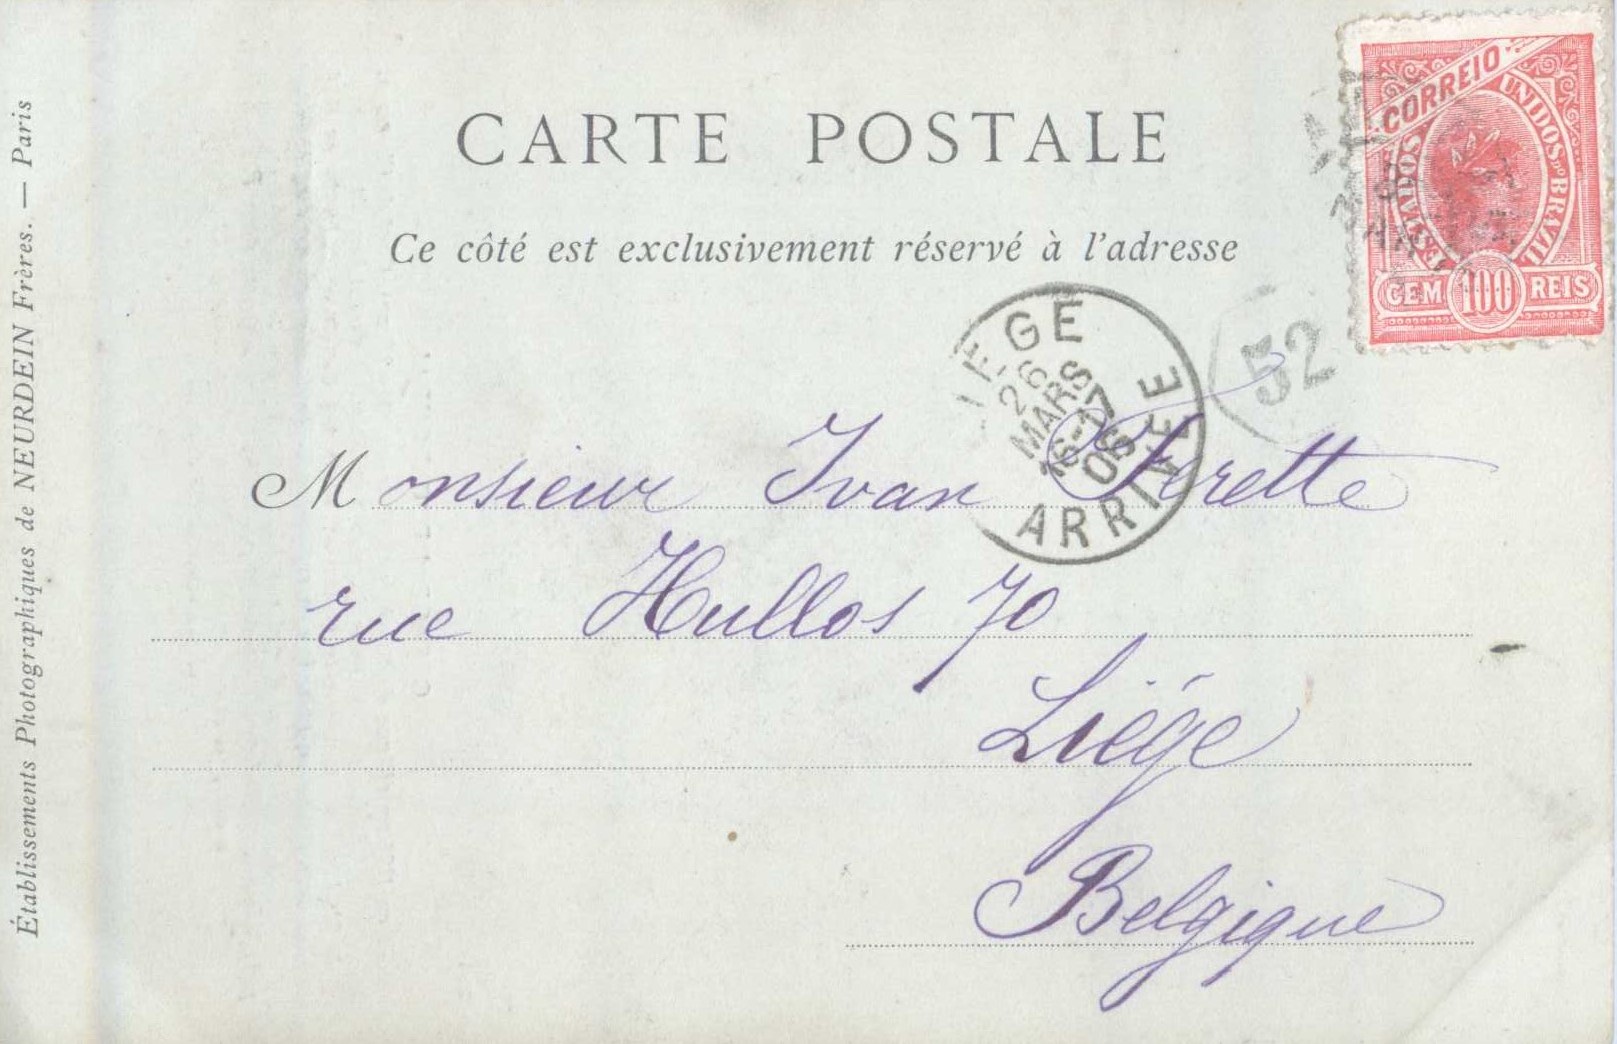 CARTE POSTALE
Ce côté est exclusivement réservé à l'adresse
CORREIO
ESTADOS UNIDOS DO BRAZIL
CEM 100 REIS
52
LIEGE
26
MARS
16-17
06
ARRIVEE
Monsieur Ivan Ferette
rue Hullos 70
Liége
Belgique
Établissements Photographiques de NEURDEIN Frères. — Paris